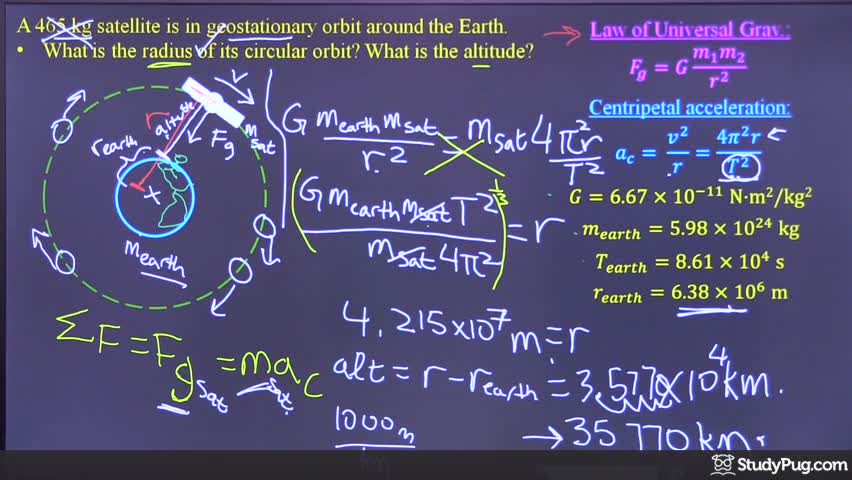 A 465 kg satellite is in geostationary orbit around the Earth.
• What is the radius of its circular orbit? What is the altitude?
Law of Universal Grav.:
F_g = G m₁m₂ / r²
Centripetal acceleration:
a_c = v² / r = 4π²r / T²
G = 6.67 × 10⁻¹¹ N·m²/kg²
m_earth = 5.98 × 10²⁴ kg
T_earth = 8.61 × 10⁴ s
r_earth = 6.38 × 10⁶ m
v
altitude
r earth
Fg
m sat
m earth
G m earth m sat / r² = m sat 4π²r / T²
(G m earth m sat T² / m sat 4π²)^1/3 = r
ΣF = Fg sat = m sat a c
4.215×10⁷ m = r
alt = r − r earth = 3.577×10⁴ km.
1000 m
km
→ 35770 km.
StudyPug.com